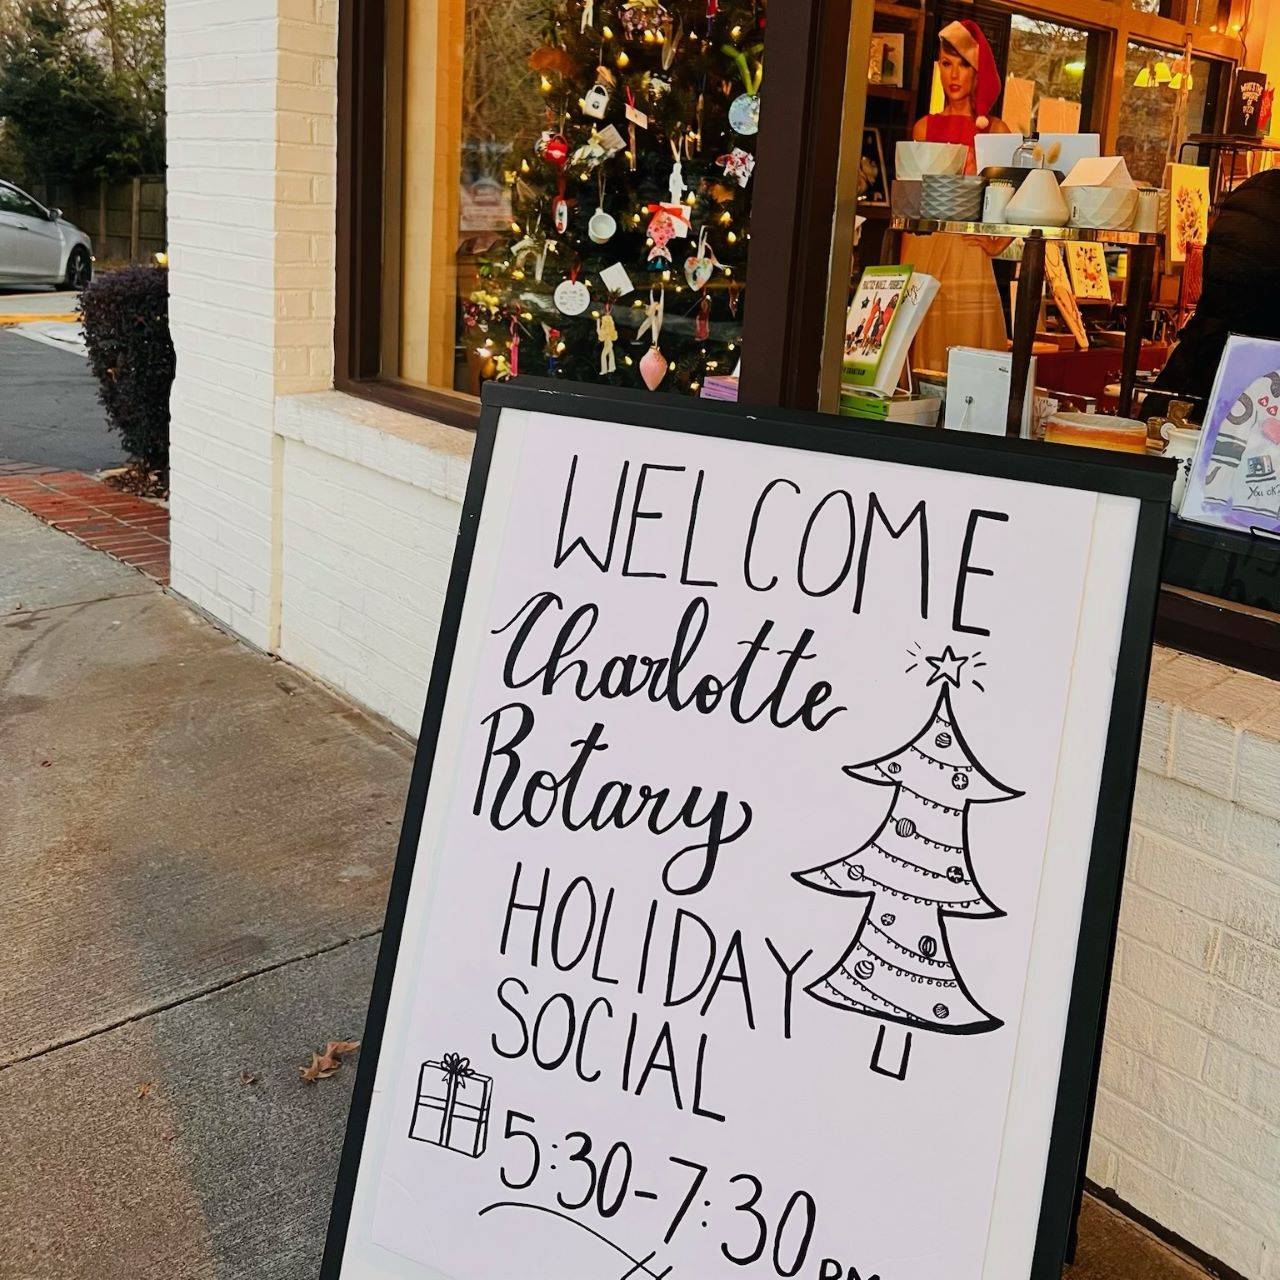 WELCOME
Charlotte
Rotary
HOLIDAY
SOCIAL
5:30-7:30 PM
You ok?